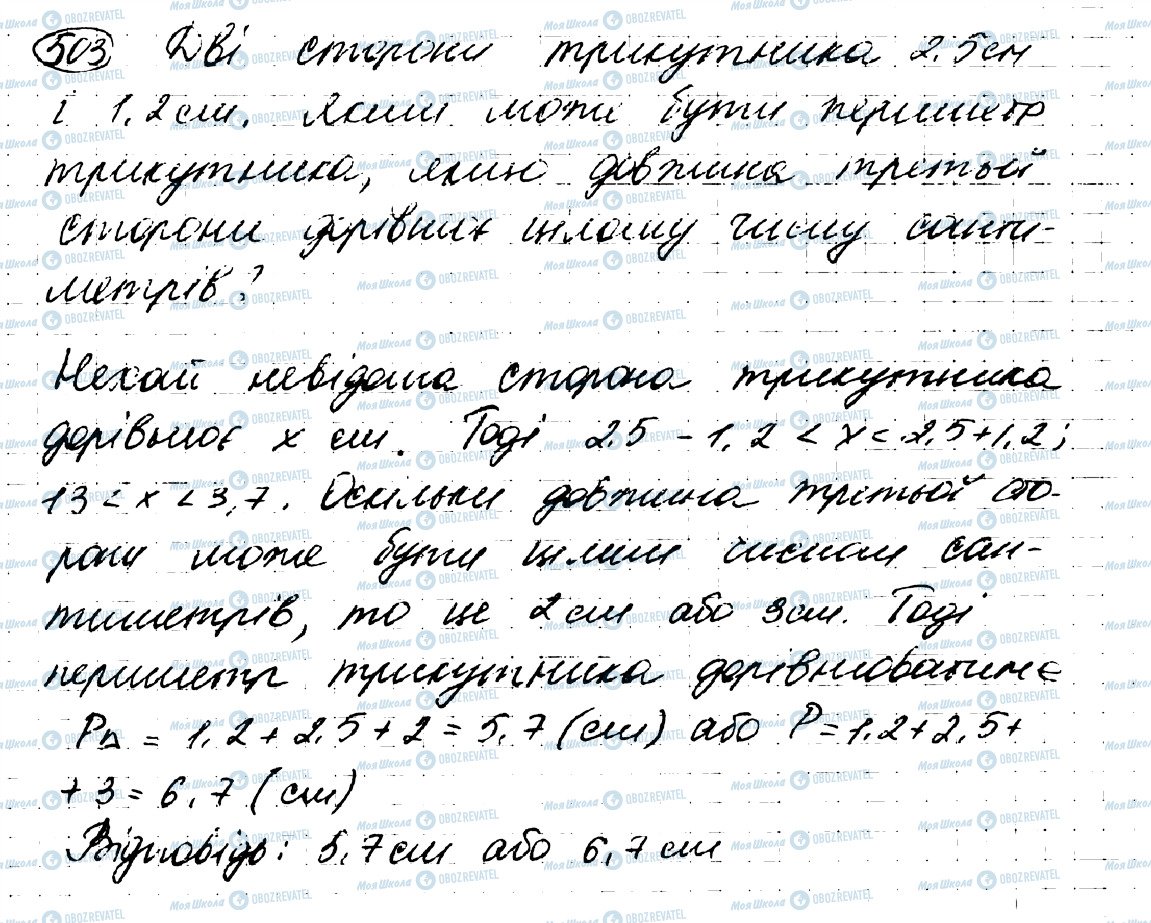 503 Дві сторони трикутника 2,5 см
і 1,2 см. Яким може бути периметр
трикутника, якщо довжина третьої
сторони дорівнює цілому числу санти-
метрів?
Нехай невідома сторона трикутника
дорівнює x см. Тоді 2,5 - 1,2 < x < 2,5 + 1,2;
1,3 < x < 3,7. Оскільки довжина третьої сто-
рони може бути цілим числом сан-
тиметрів, то це 2 см або 3 см. Тоді
периметр трикутника дорівнюватиме
P△ = 1,2 + 2,5 + 2 = 5,7 (см) або P = 1,2 + 2,5 +
+ 3 = 6,7 (см)
Відповідь: 5,7 см або 6,7 см